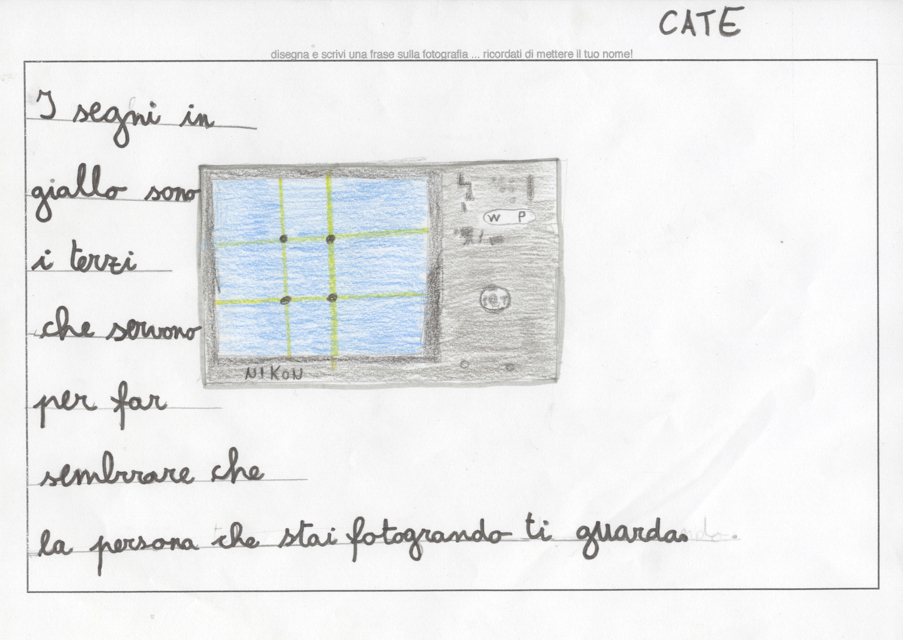 CATE
disegna e scrivi una frase sulla fotografia ... ricordati di mettere il tuo nome!
I segni in
giallo sono
i terzi
che servono
W P
per far
NIKON
sembrare che
la persona che stai fotogrando ti guarda.